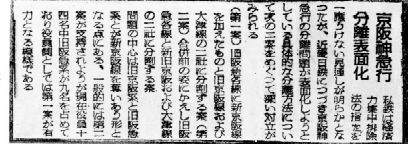 京阪神急行
分離表面化
私鉄は経済
力集中排除
法の指定を
一應うけない見通しが明らかとな
つたが、近畿日鉄につづき京阪神
急行の分離問題が表面化しようと
している具体的な分離方法につい
て次の三案をめぐつて深い対立が
みられる
(第一案)旧阪急線に新京阪線
を加えたものと旧京阪線および
大津線の二社に分割する案(第
二案)合併前の姿にかえし旧阪
急線と旧京阪および大津線
の二社に分割する案
問題の中心は旧京阪と旧阪急
とが新京阪線を奪いあう形と
なる点にある、一般的には第二
案が支持されようが現在役員十
四名中旧阪急系が九名を占めて
おり役員間としては第一案が有
力となる模様である